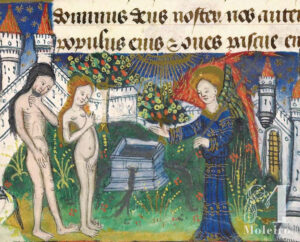 dominus deus noster nos autem
populus eius & oues pascue eiu
Moleiro